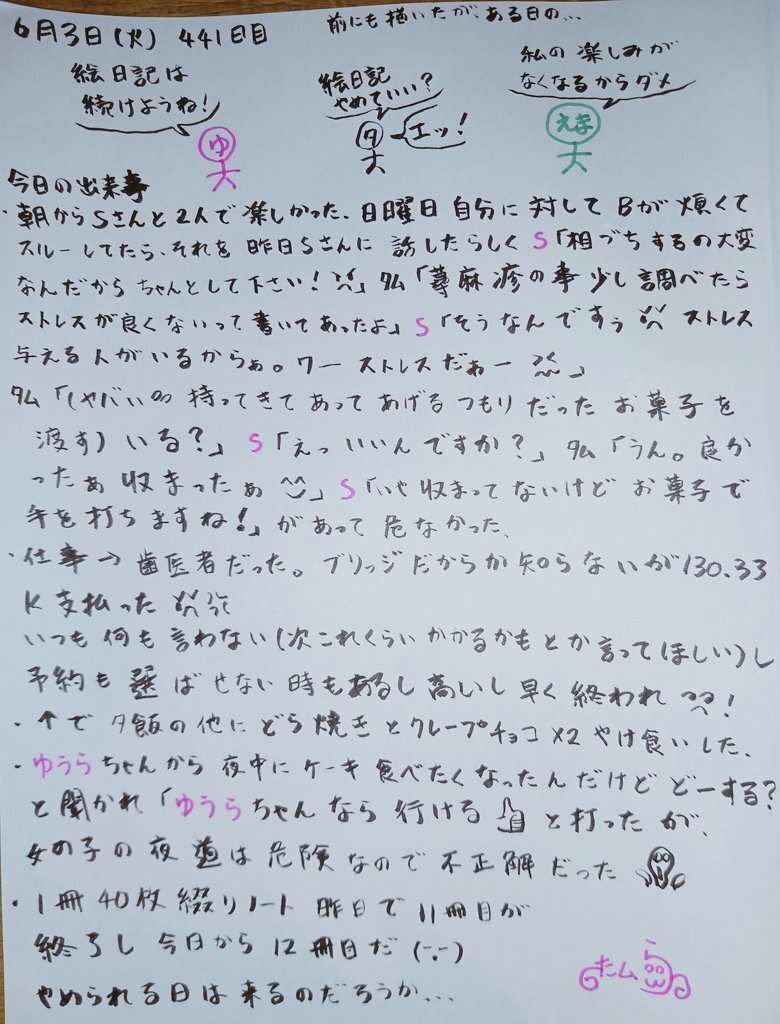 6月3日(火) 441日目
前にも描いたが、ある日の...
絵日記は
続けようね!
絵日記
やめていい?
エッ!
私の楽しみが
なくなるからダメ
ゆ
タ
えま
今日の出来事
・朝からSさんと2人で楽しかった、日曜日自分に対してBが煩くて
スルーしてたら、それを昨日Sさんに話したらしくS「相づちするの大変
なんだからちゃんとして下さい!」タム「蕁麻疹の事少し調べたら
ストレスが良くないって書いてあったよ」S「そうなんですぅ ストレス
与える人がいるからぁ。ワーストレスだぁー」
タム「(ヤバい 持ってきてあってあげるつもりだったお菓子を
渡す)いる?」S「えっいいんですか?」タム「うん。良か
ったぁ収まったぁ」S「いや収まってないけどお菓子で
手を打ちますね!」があって危なかった、
・仕事→歯医者だった。ブリッジだからか知らないが130.33
K支払った
いつも何も言わない(次これくらいかかるかもとか言ってほしい)し
予約も選ばせない時もあるし高いし早く終われ!
・↑で夕飯の他にどら焼きとクレープチョコX2やけ食いした、
・ゆうらちゃんから夜中にケーキ食べたくなったんだけどどーする?
と聞かれ「ゆうらちゃんなら行ける と打ったが、
女の子の夜道は危険なので不正解だった
・1冊40枚綴りノート昨日で11冊目が
終了し今日から12冊目だ(-.-)
やめられる日は来るのだろうか...
たム